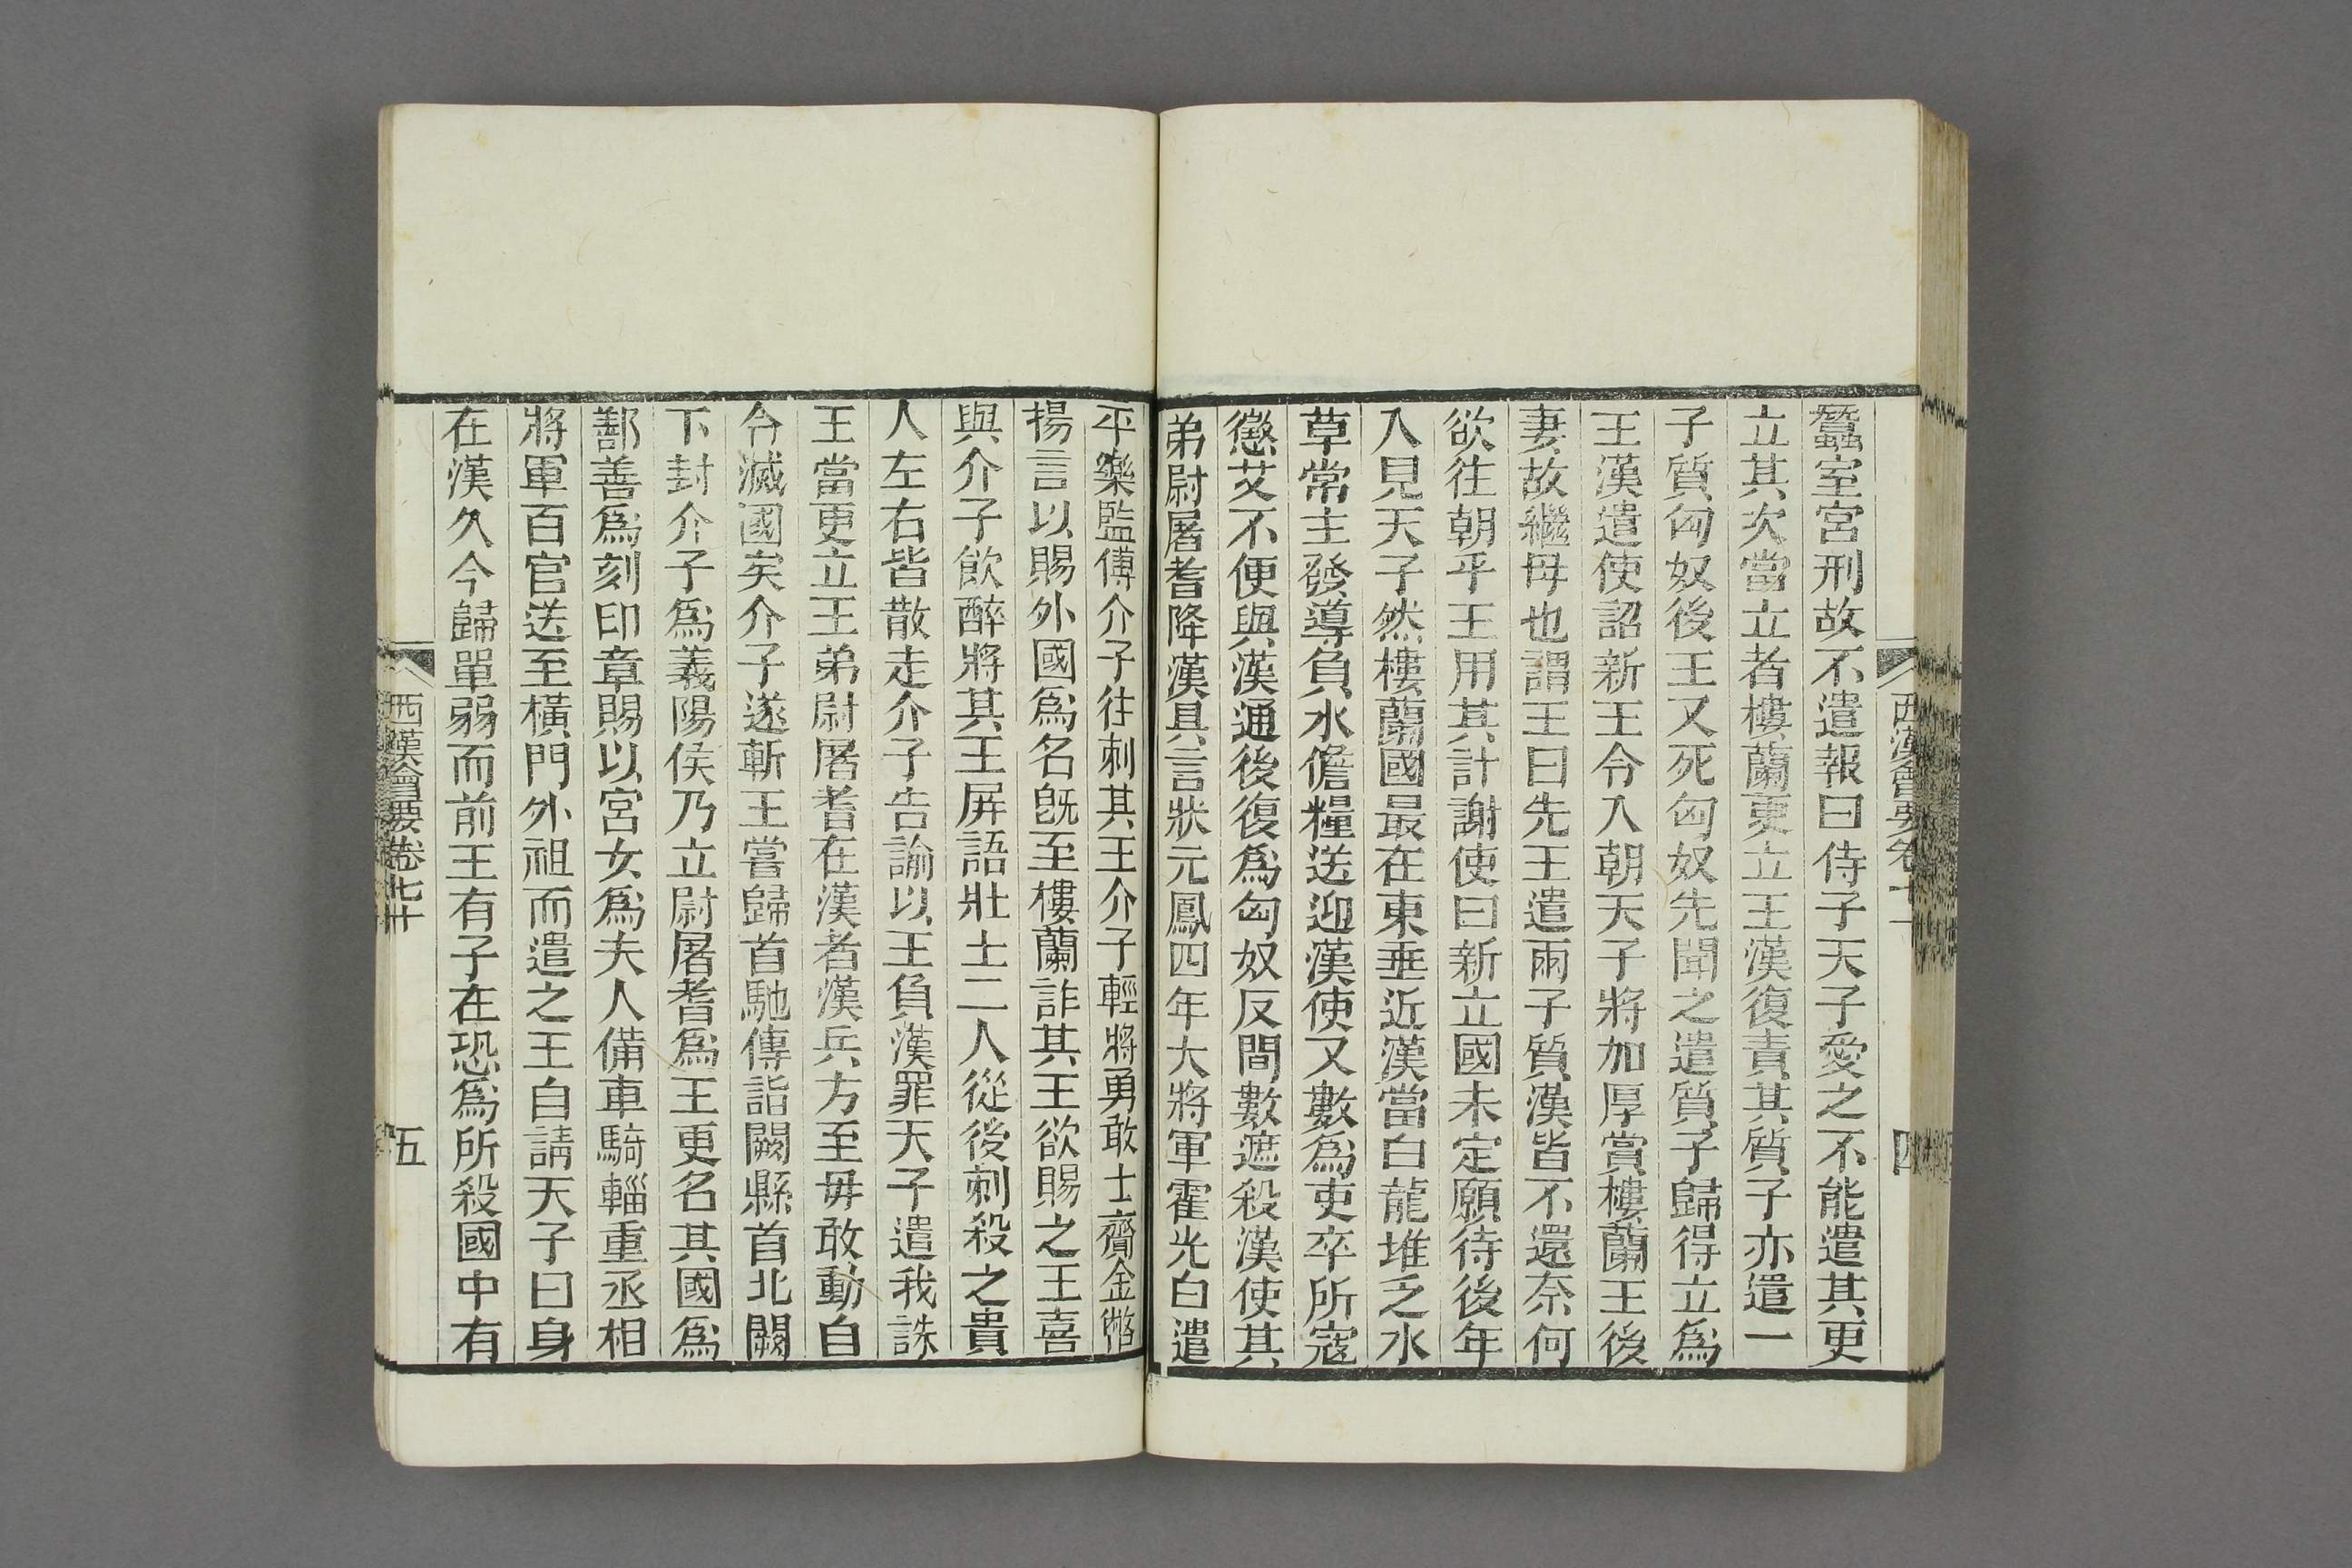 蠶室宮刑故不遣報曰侍子天子愛之不能遣其更
立其次當立者樓蘭更立王漢復責其質子亦遣一
子質匈奴後王又死匈奴先聞之遣質子歸得立爲
王漢遣使詔新王令入朝天子將加厚賞樓蘭王後
妻故繼母也謂王曰先王遣兩子質漢皆不還奈何
欲往朝乎王用其計謝使曰新立國未定願待後年
入見天子然樓蘭國最在東垂近漢當白龍堆乏水
草常主發導負水儋糧送迎漢使又數爲吏卒所寇
懲艾不便與漢通後復爲匈奴反間數遮殺漢使其
弟尉屠耆降漢具言狀元鳳四年大將軍霍光白遣
平樂監傅介子往刺其王介子輕將勇敢士齎金幣
揚言以賜外國爲名旣至樓蘭詐其王欲賜之王喜
與介子飲醉將其王屏語壯士二人從後刺殺之貴
人左右皆散走介子告諭以王負漢罪天子遣我誅
王當更立王弟尉屠耆在漢者漢兵方至毋敢動自
令滅國矣介子遂斬王嘗歸首馳傳詣闕縣首北闕
下封介子爲義陽侯乃立尉屠耆爲王更名其國爲
鄯善爲刻印章賜以宮女爲夫人備車騎輜重丞相
將軍百官送至橫門外祖而遣之王自請天子曰身
在漢久今歸單弱而前王有子在恐爲所殺國中有
西漢會要卷七十
五